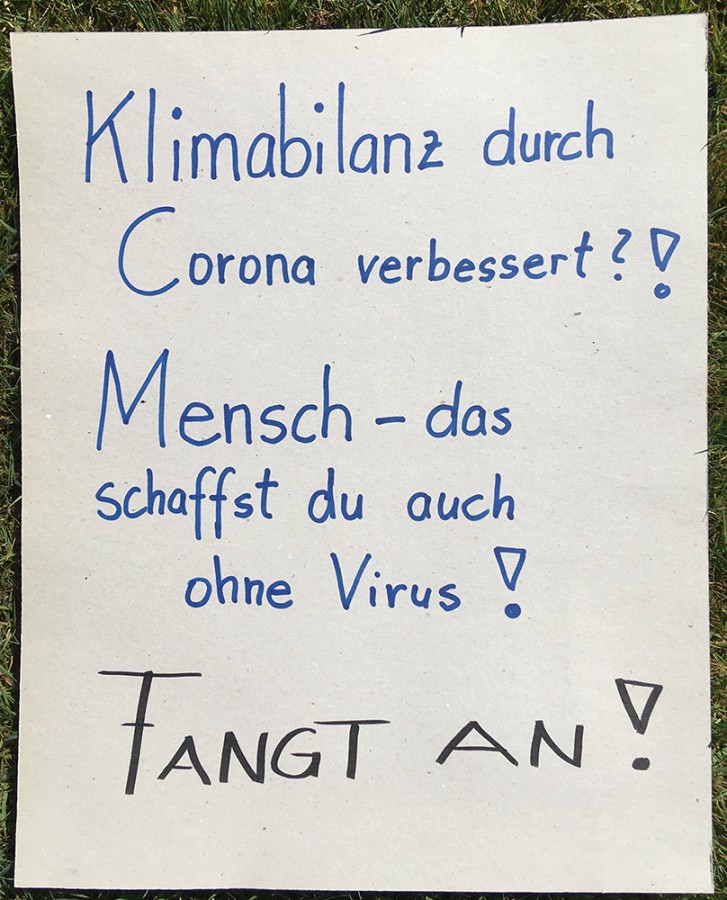 Klimabilanz durch
Corona verbessert?!
Mensch – das
schaffst du auch
ohne Virus!
FANGT AN!